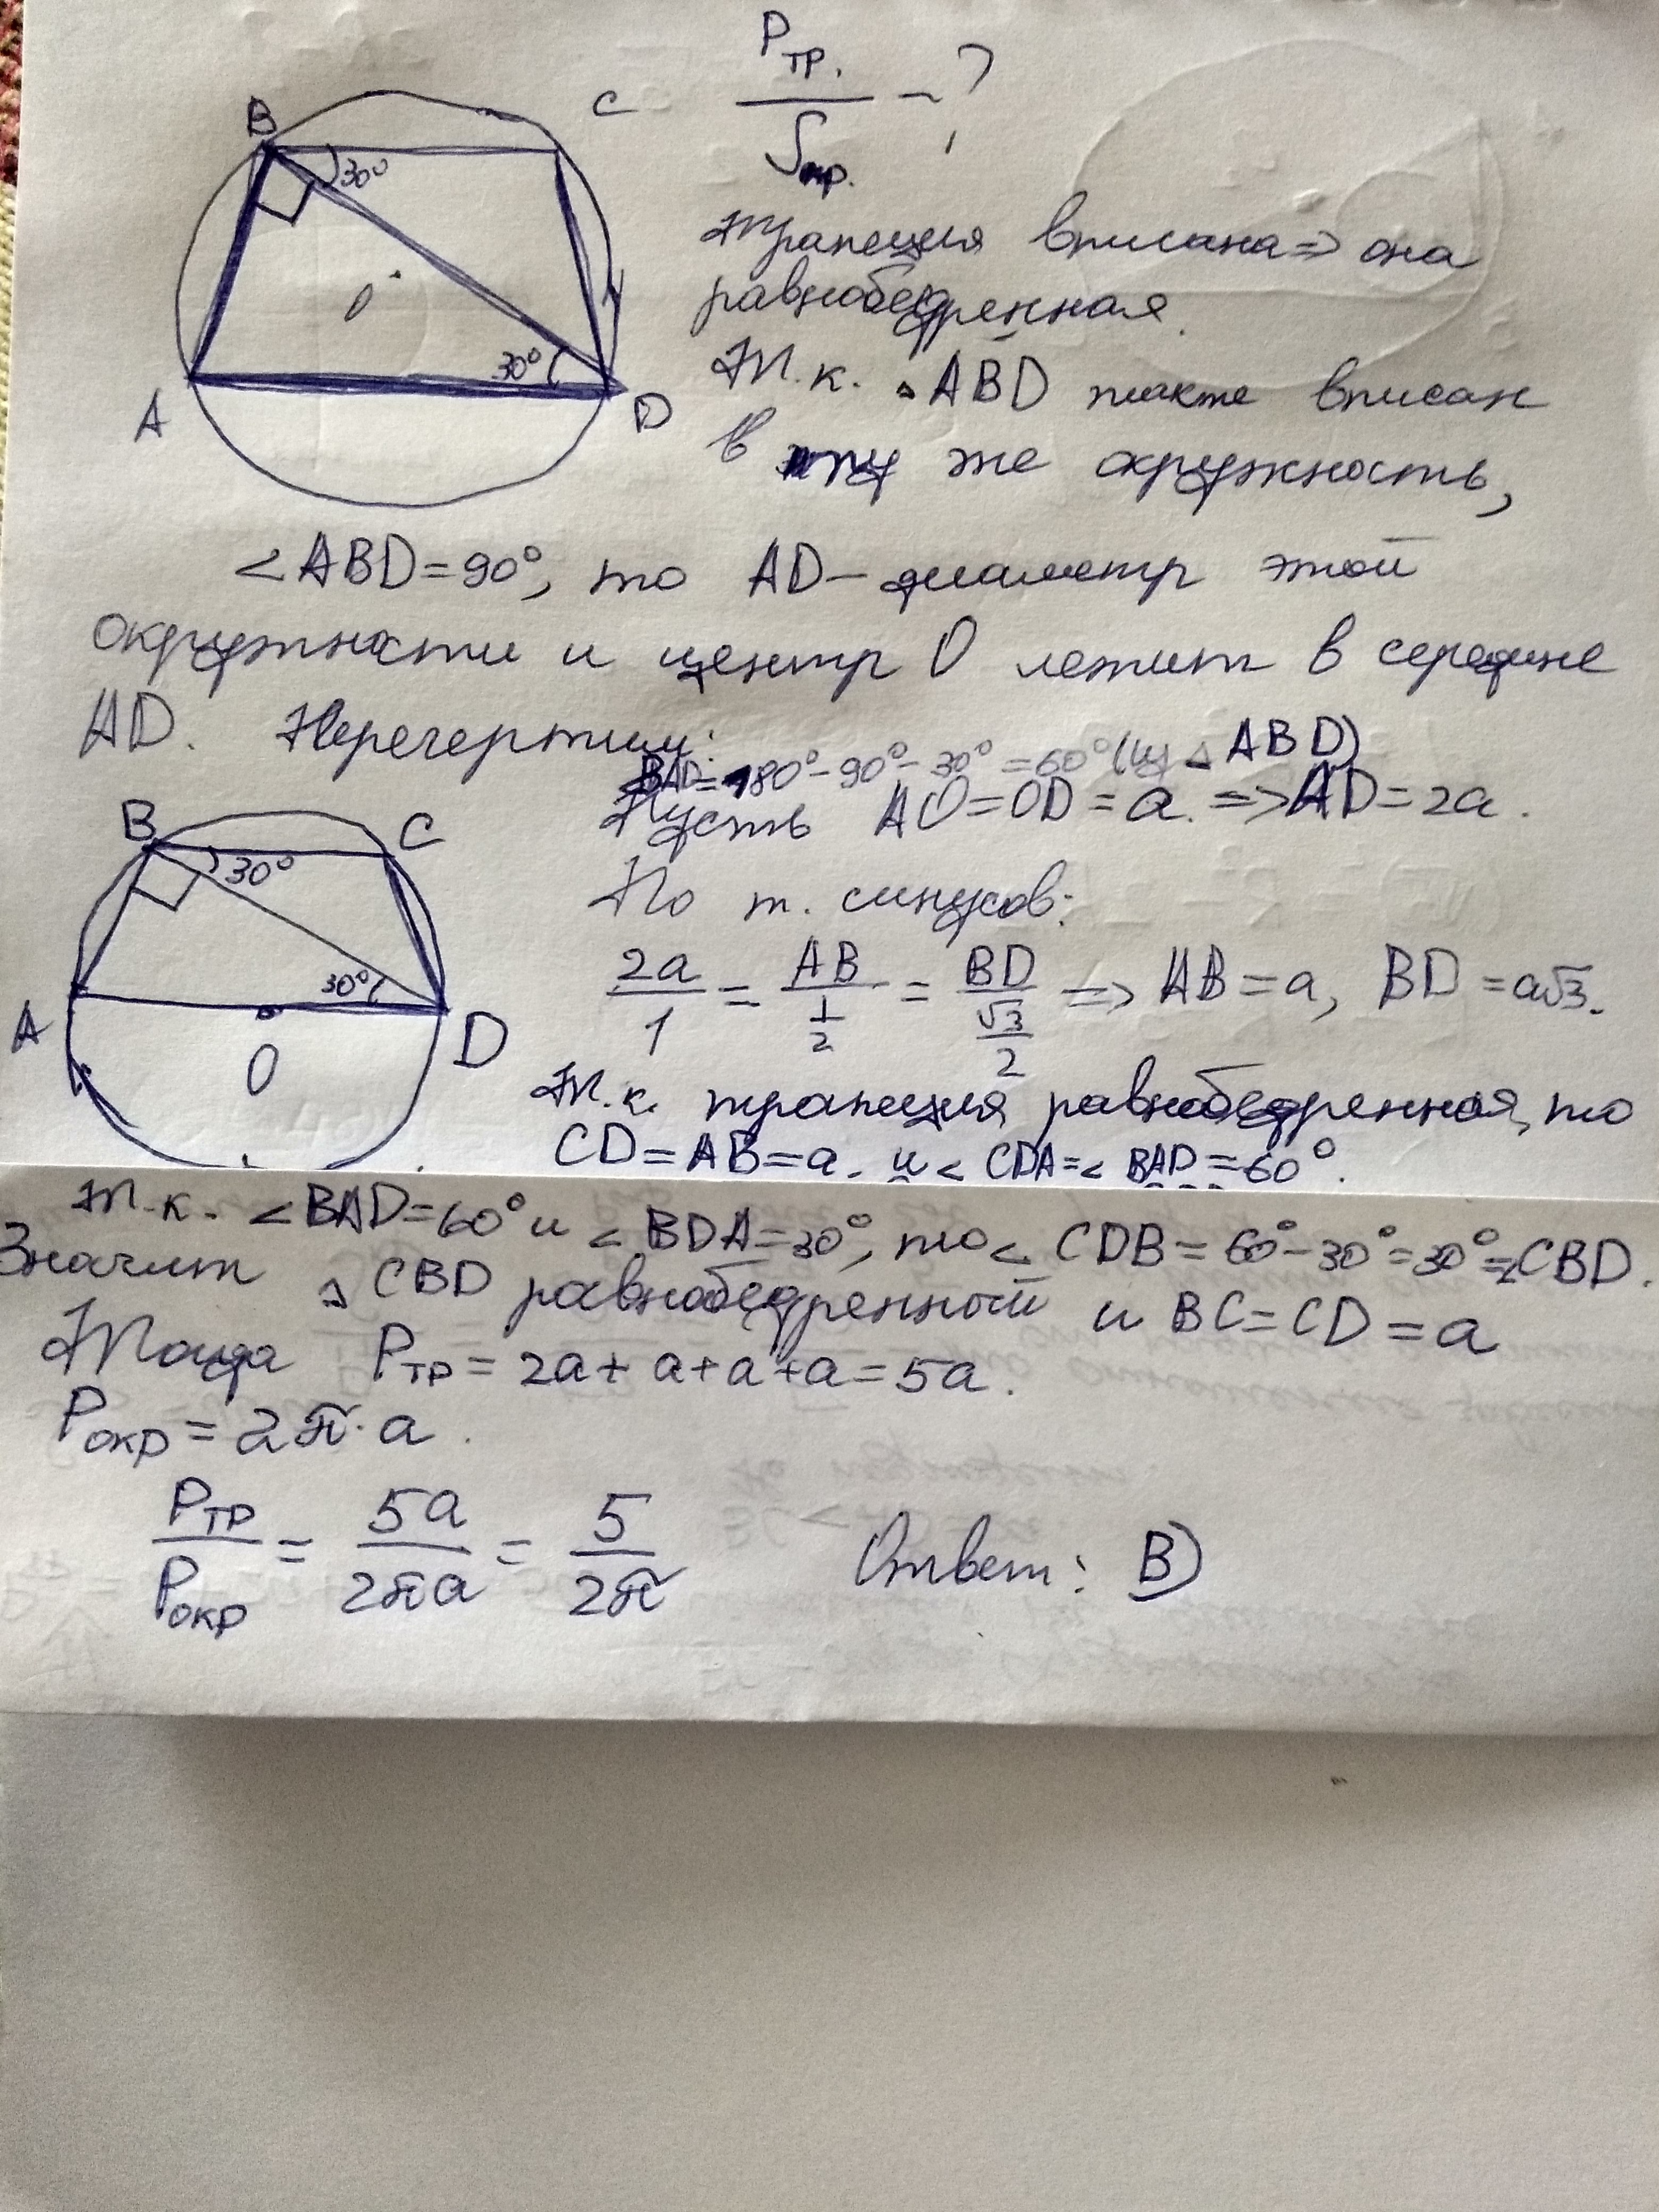 B
C
30°
O
30°
A
D
Pтр.
— - ?
Sкр.
трапеция вписана => она
равнобедренная.
Т.к. △ABD также вписан
в ту же окружность,
∠ABD=90°, то AD - диаметр этой
окружности и центр O лежит в середине
AD. Перечертим:
B
C
30°
30°
A
D
O
∠BAD=180°-90°-30°=60° (из △ABD)
Пусть AO=OD=a. => AD=2a.
По т. синусов:
2a/1 = AB/(1/2) = BD/(√3/2) => AB=a, BD=a√3.
Т.к. трапеция равнобедренная, то
CD=AB=a. и ∠CDA=∠BAD=60°.
Т.к. ∠BAD=60° и ∠BDA=30°, то ∠CDB=60°-30°=30°=∠CBD.
Значит △CBD равнобедренный и BC=CD=a
Тогда Pтр=2a+a+a+a=5a.
Pокр=2π·a.
Pтр/Pокр = 5a/2πa = 5/2π Ответ: B)